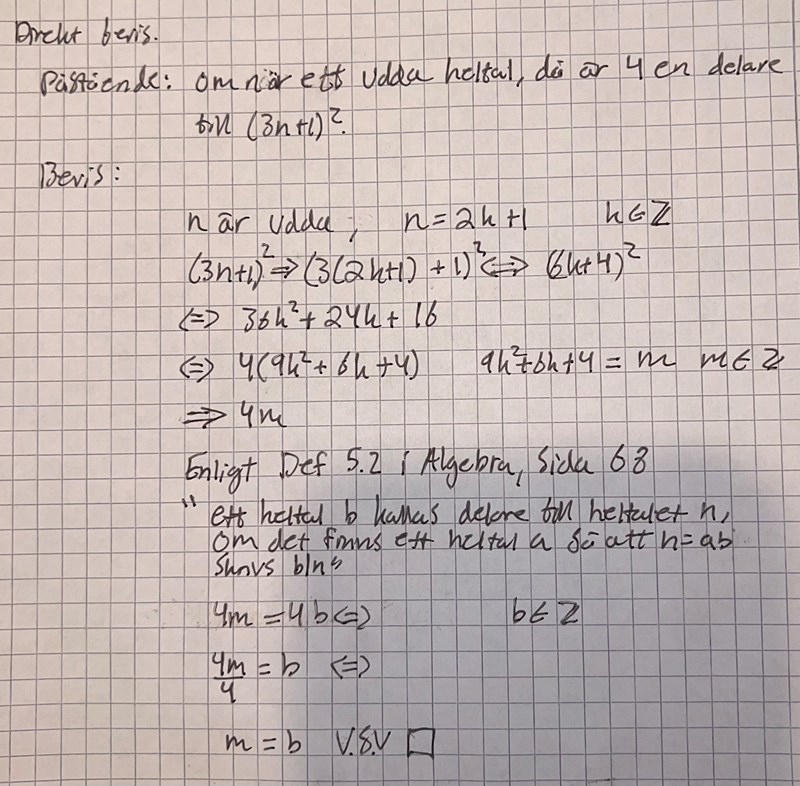 Direkt bevis.
Påstående: om n är ett udda heltal, då är 4 en delare
till (3n+1)².
Bevis:
n är udda, n=2k+1 k∈ℤ
(3n+1)² ⇒ (3(2k+1)+1)² ⇔ (6k+4)²
⇔ 36k²+24k+16
⇔ 4(9k²+6k+4) 9k²+6k+4 = m m∈ℤ
⇒ 4m
Enligt Def 5.2 i Algebra, Sida 68
"ett heltal b kallas delare till heltalet n,
om det finns ett heltal a så att n=ab
skrivs b|n"
4m = 4b ⇔ b∈ℤ
4m/4 = b ⇔
m = b V.S.V □